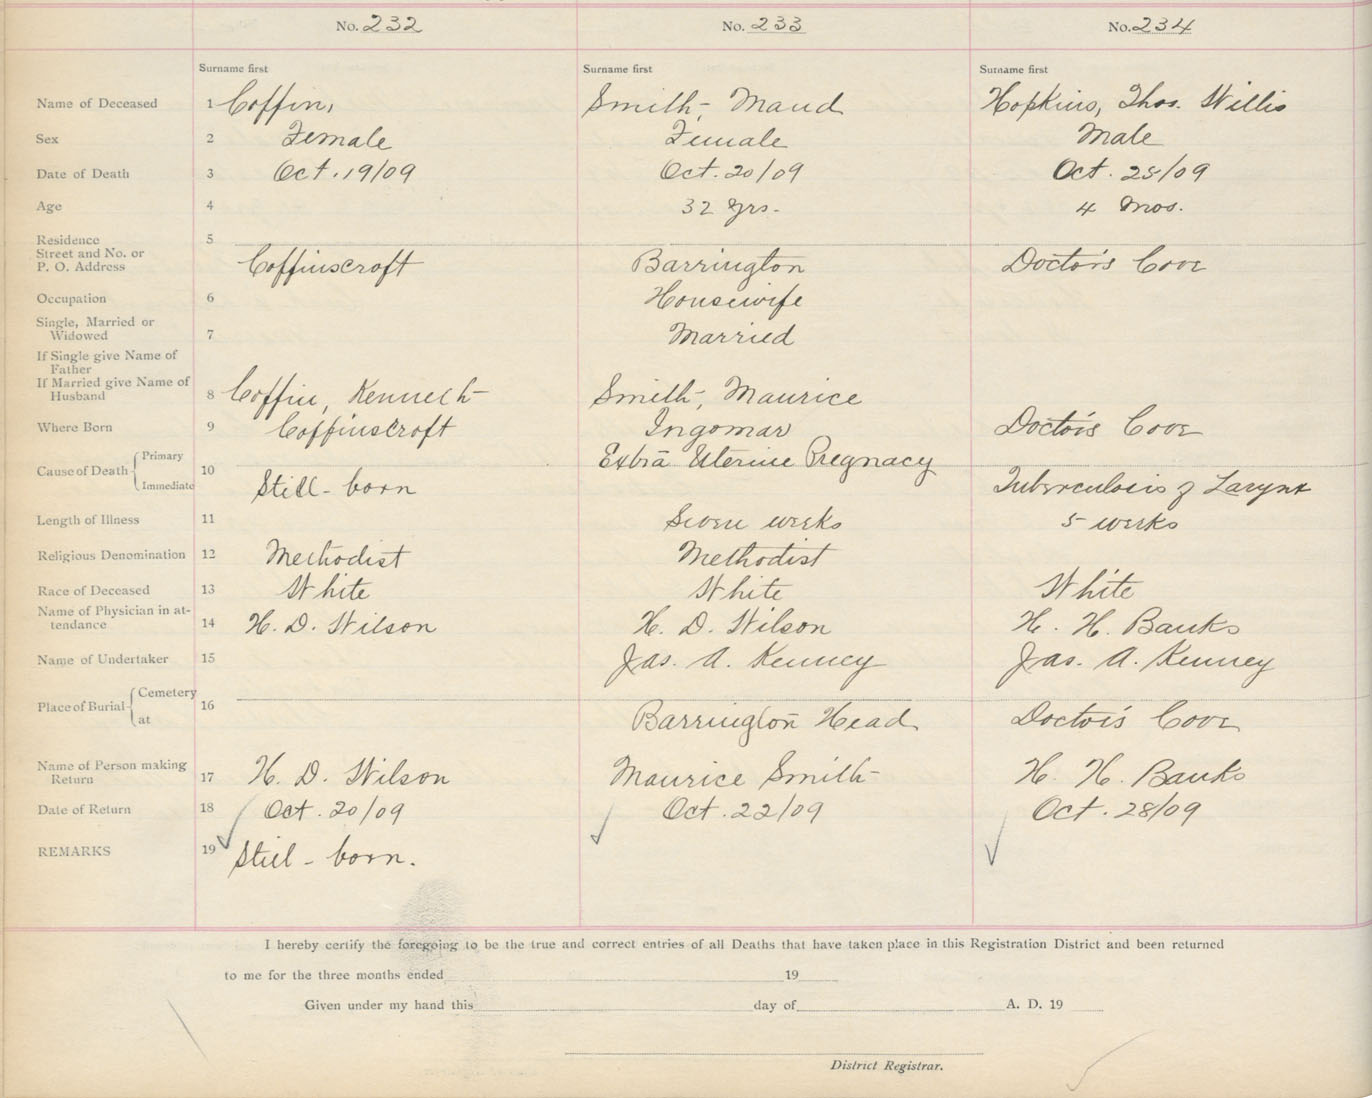 No. 232 No. 233 No. 234
Surname first Surname first Surname first
Name of Deceased 1 Coffin, Smith, Maud Hopkins, Thos. Willis
Sex 2 Female Female Male
Date of Death 3 Oct. 19/09 Oct. 20/09 Oct. 25/09
Age 4 32 yrs. 4 mos.
Residence 5
Street and No. or
P. O. Address Coffinscroft Barrington Doctor's Cove
Occupation 6 Housewife
Single, Married or
Widowed 7 Married
If Single give Name of
Father
If Married give Name of
Husband 8 Coffin, Kenneth Smith, Maurice
Where Born 9 Coffinscroft Ingomar Doctor's Cove
Cause of Death Primary Extra Uterine Pregnacy
Immediate 10 Still-born Tuberculosis of Larynx
Length of Illness 11 Seven weeks 5 weeks
Religious Denomination 12 Methodist Methodist
Race of Deceased 13 White White White
Name of Physician in at-
tendance 14 H. D. Wilson H. D. Wilson H. H. Banks
Name of Undertaker 15 Jas. A. Kenney Jas. A. Kenney
Place of Burial Cemetery 16
at Barrington Head Doctor's Cove
Name of Person making
Return 17 H. D. Wilson Maurice Smith H. H. Banks
Date of Return 18 Oct. 20/09 Oct. 22/09 Oct. 28/09
REMARKS 19 Still-born.
I hereby certify the foregoing to be the true and correct entries of all Deaths that have taken place in this Registration District and been returned
to me for the three months ended 19
Given under my hand this day of A. D. 19
District Registrar.